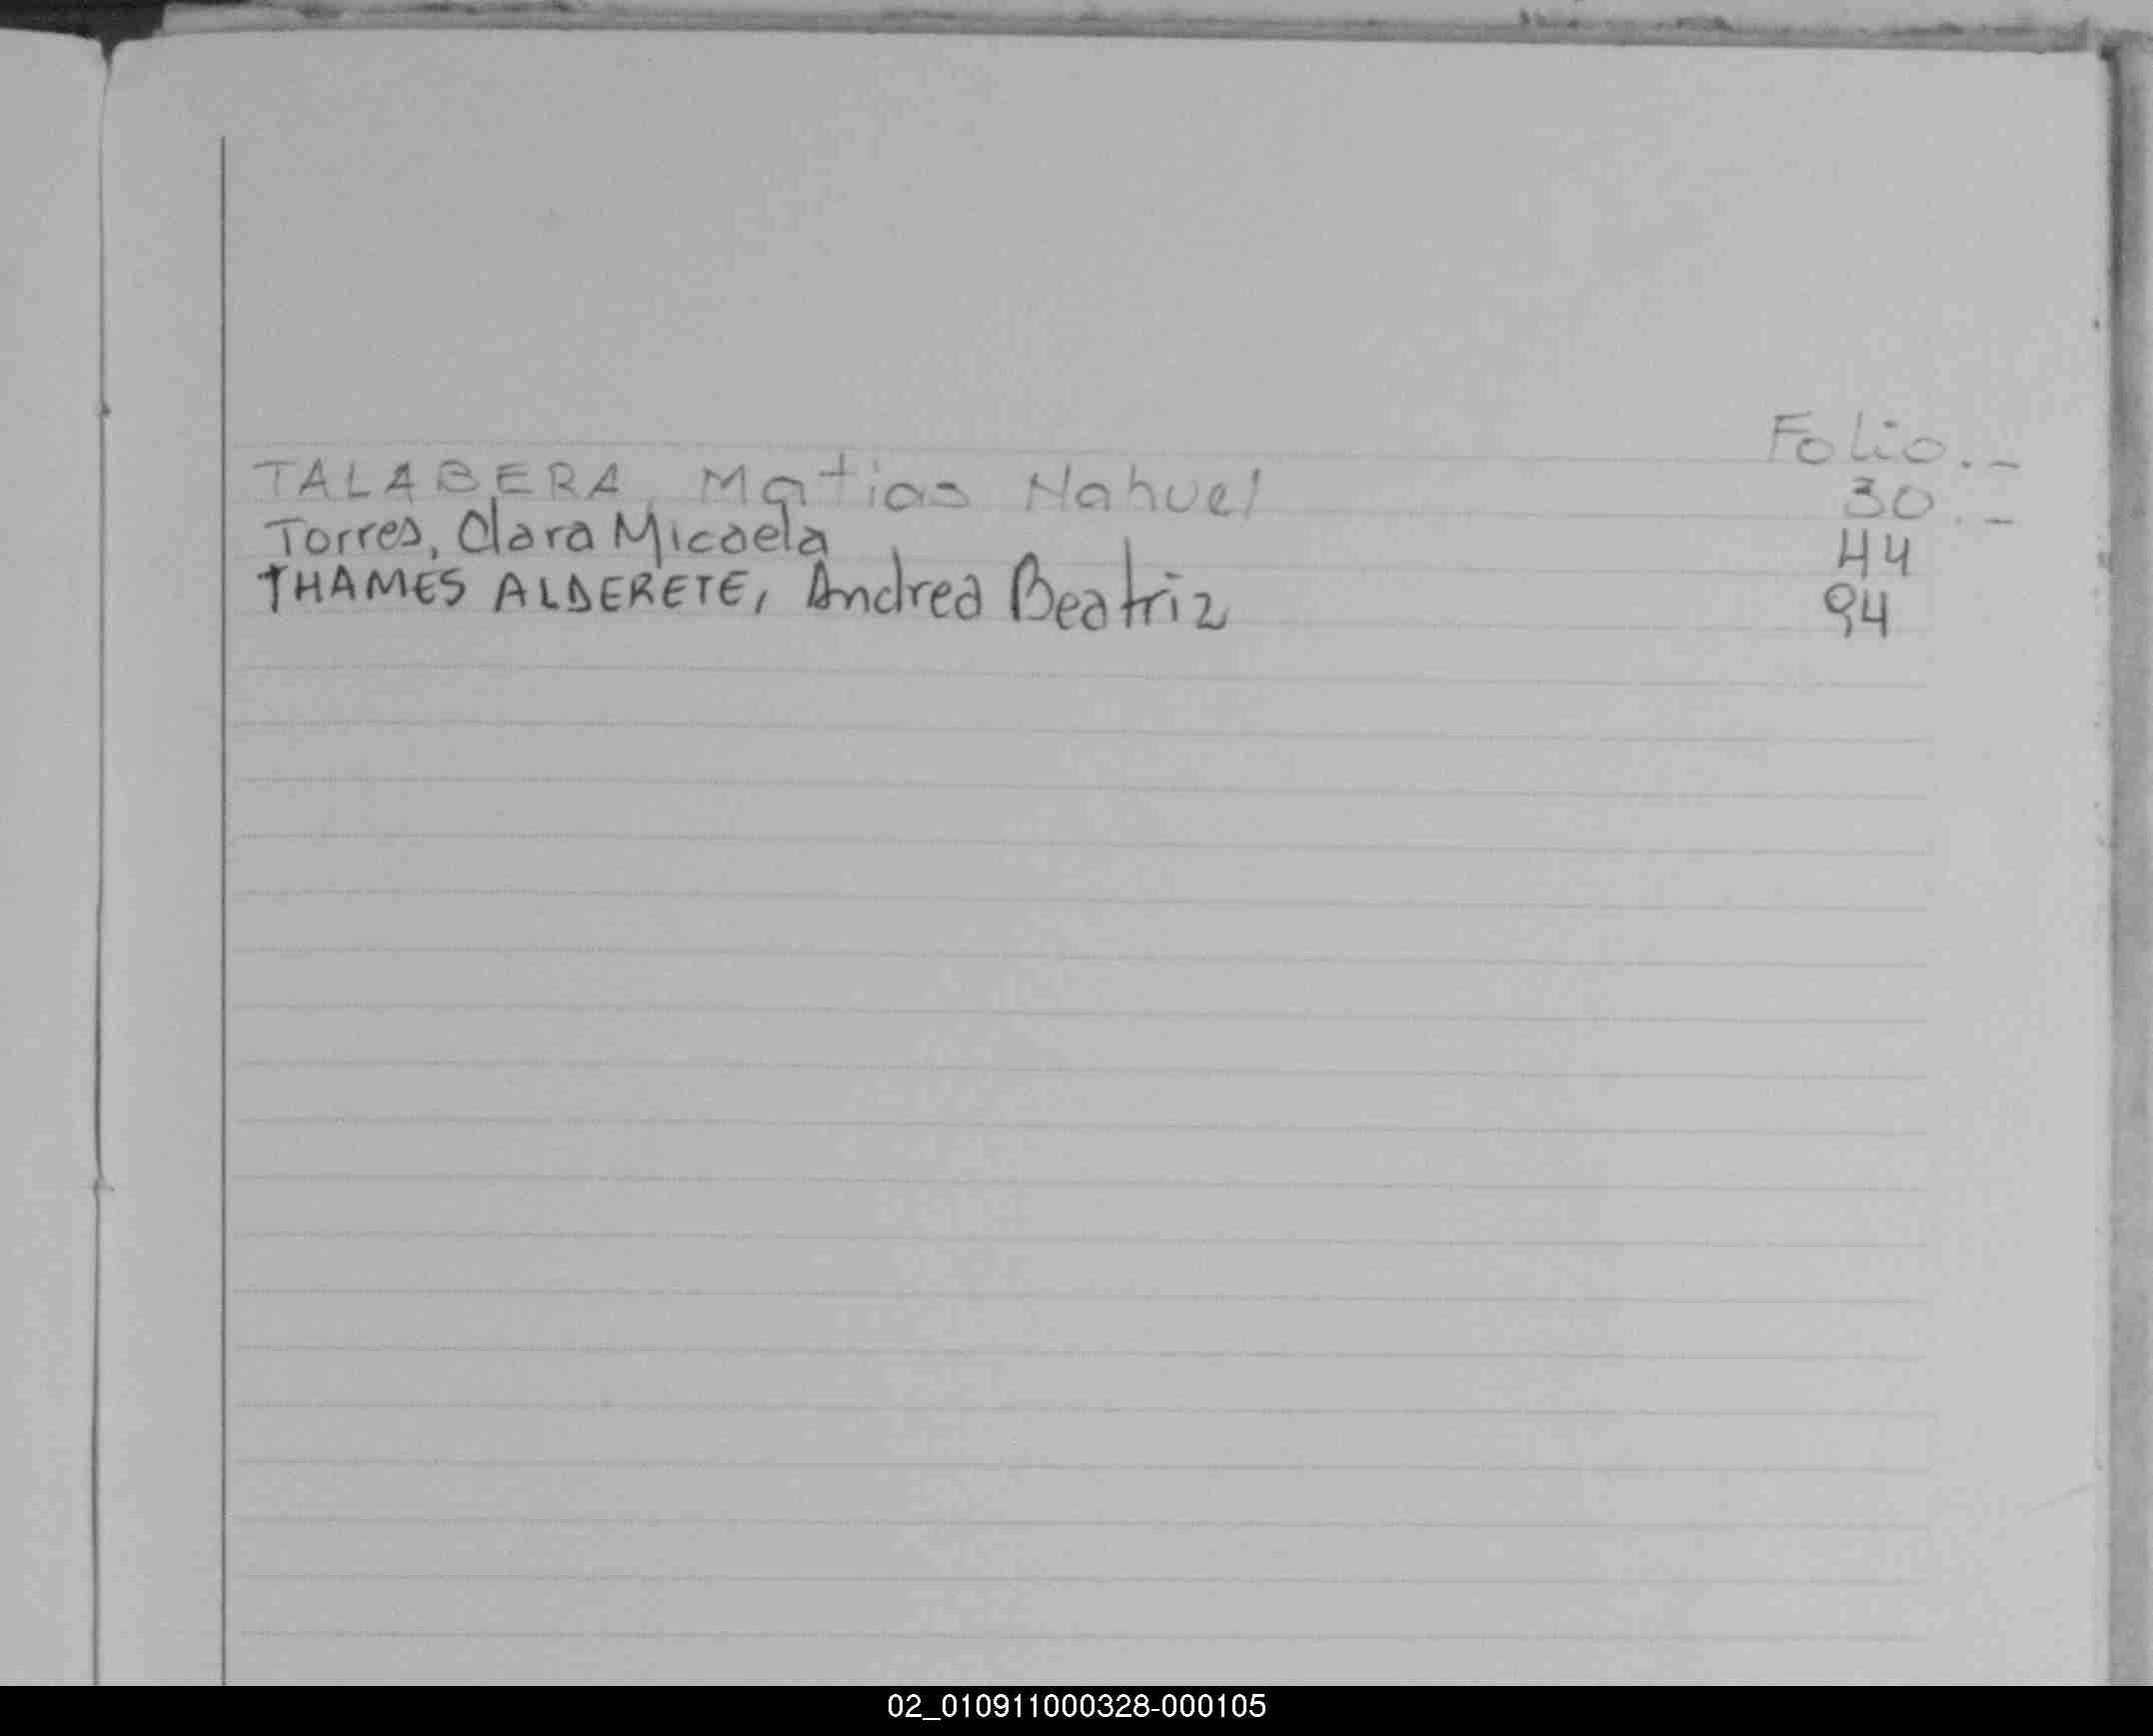 Folio.-
TALABERA, Matias Nahuel 30.-
Torres, Clara Micaela 44
THAMES ALDERETE, Andrea Beatriz 94
02_010911000328-000105